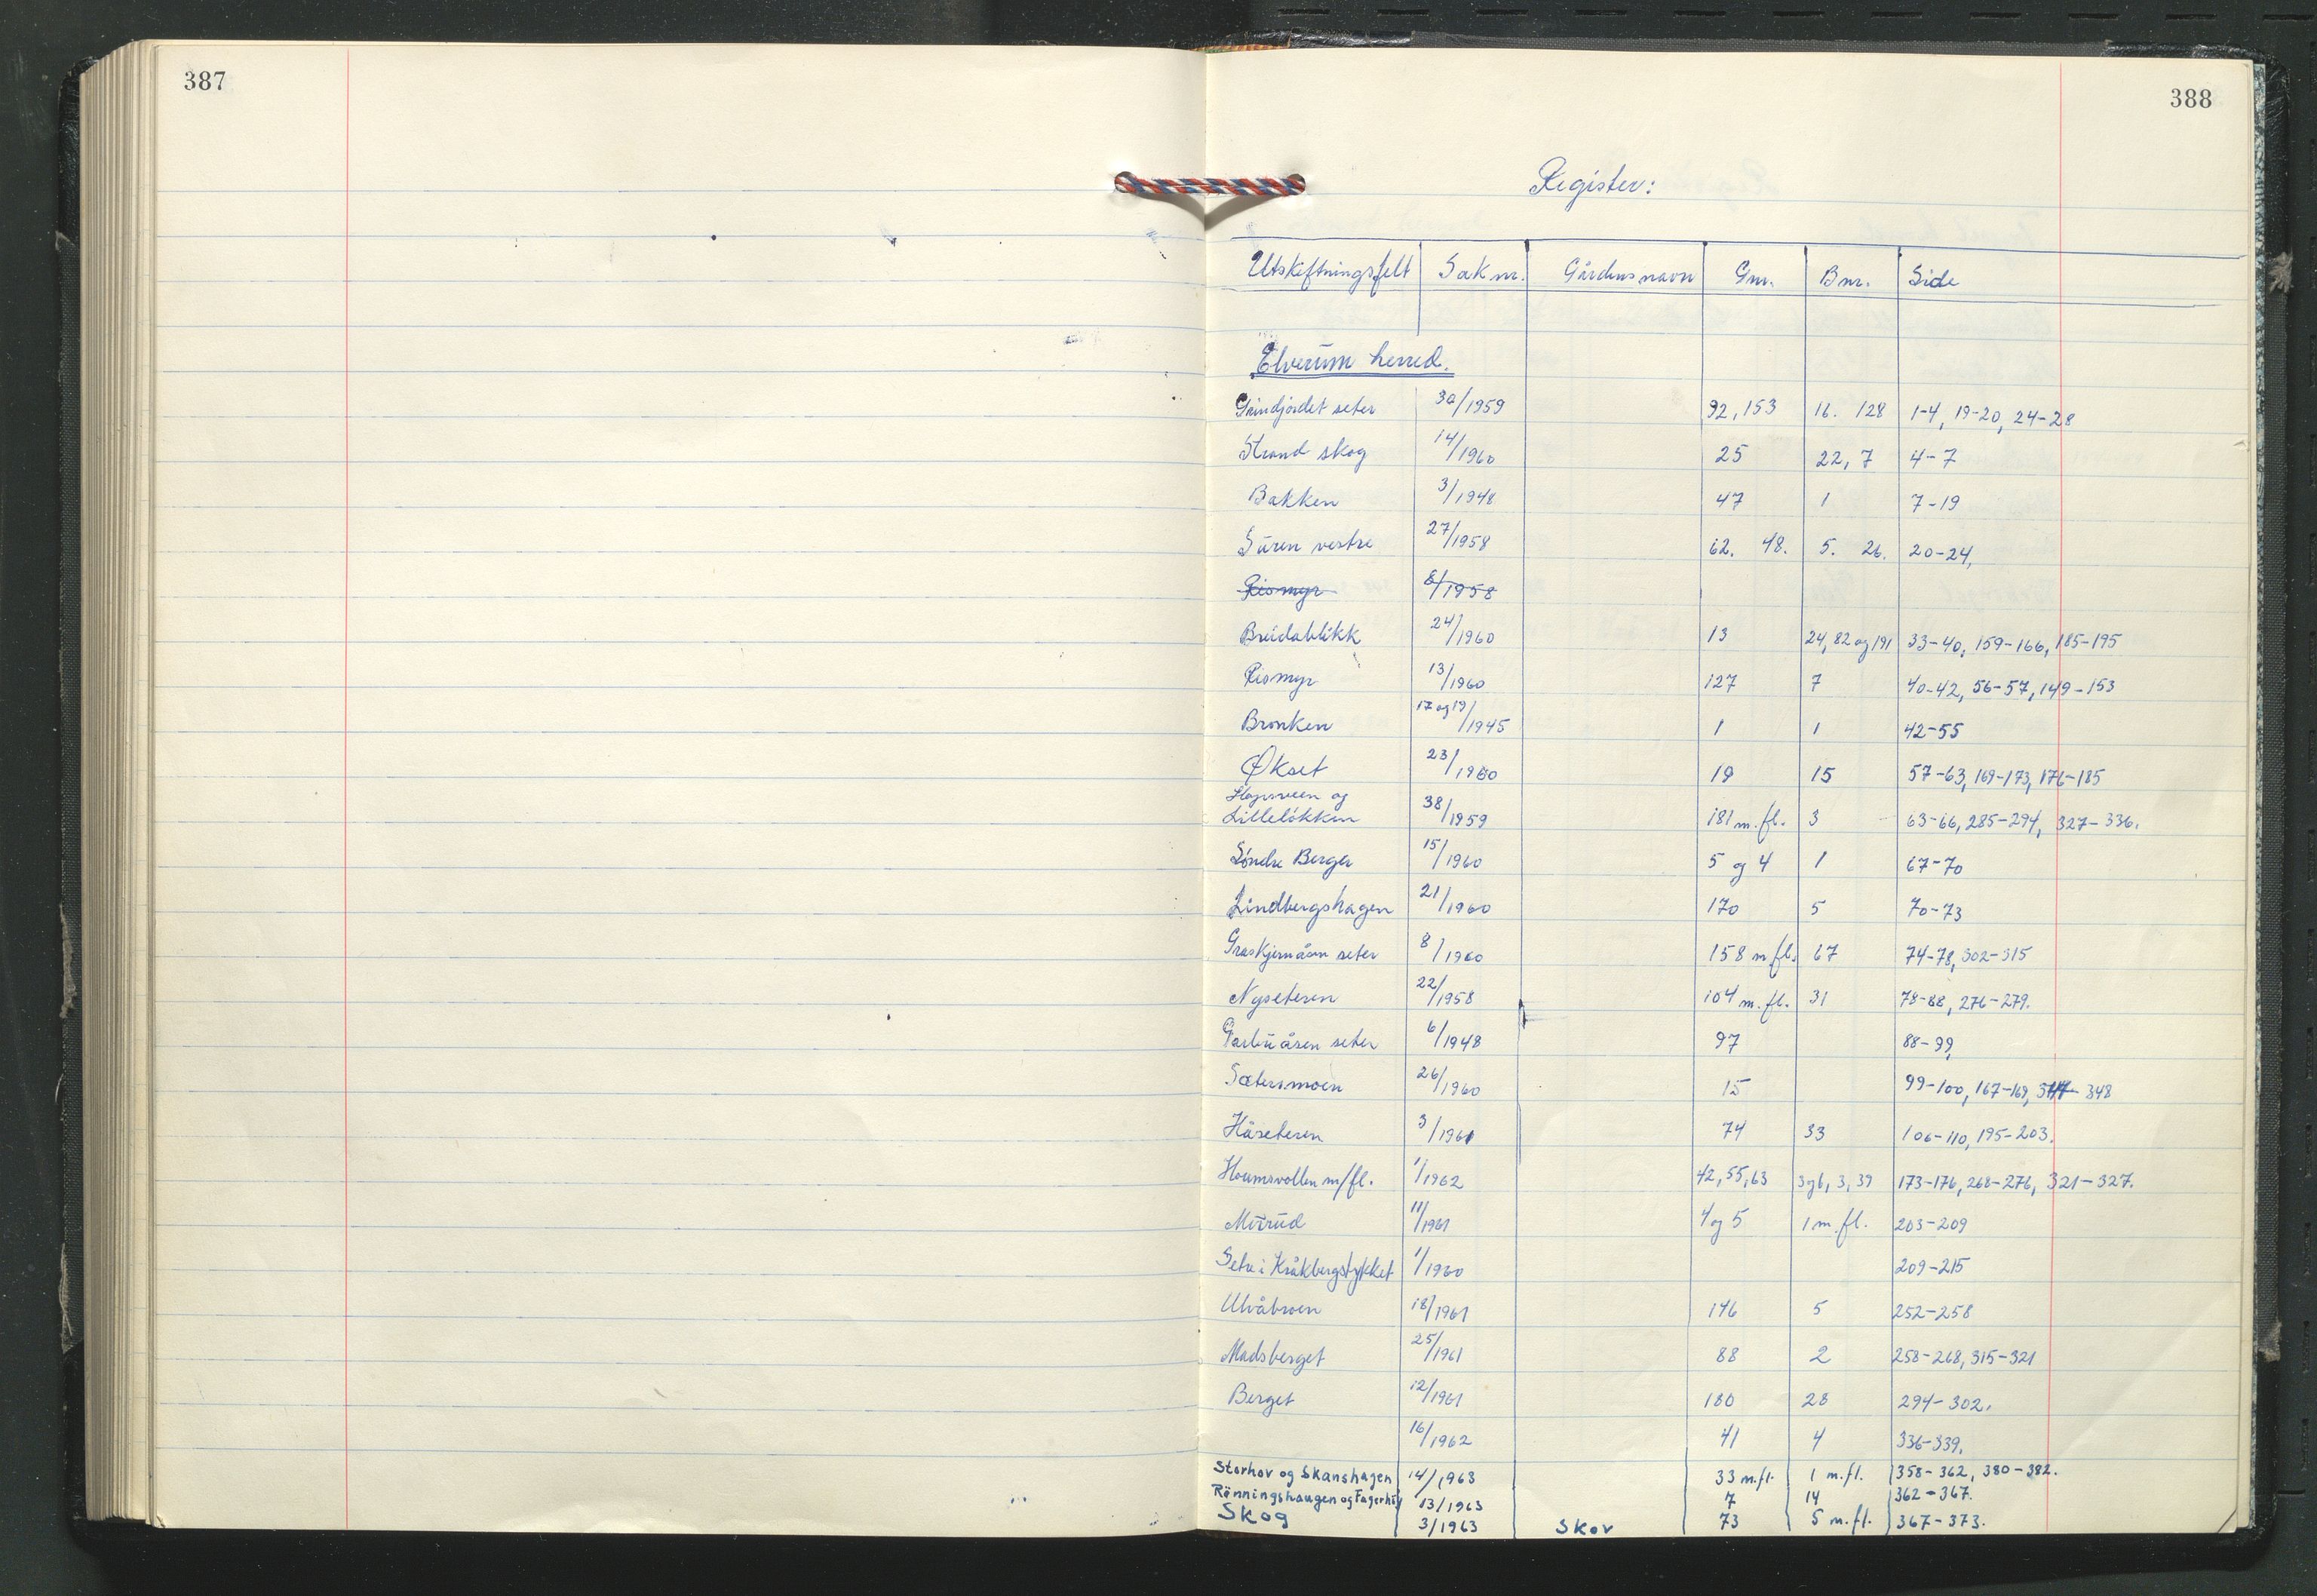 387
388
Register:
Utskiftningsfelt Sak nr. Gårdens navn Gnr. Bnr. Side
Elverum herred.
Grindjordet seter 30/1959 92, 153 16. 128 1-4, 19-20, 24-28
Strand skog 14/1960 25 22, 7 4-7
Bakken 3/1948 47 1 7-19
Suren vestre 27/1958 62. 48. 5. 26. 20-24,
Rismyr 8/1958
Breidablikk 24/1960 13 24, 82 og 191 33-40, 159-166, 185-195
Rismyr 13/1960 127 7 40-42, 56-57, 149-153
Bronken 17 og 19/1945 1 1 42-55
Økset 23/1960 19 15 57-63, 169-173, 176-185
og
Lilleløkken 38/1959 181 m.fl. 3 63-66, 285-294, 327-336.
Søndre Berger 15/1960 5 og 4 1 67-70
Lindbergshagen 21/1960 170 5 70-73
Graskjernåsen seter 8/1960 158 m fl. 67 74-78, 302-315
Nyseteren 22/1958 104 m.fl. 31 78-88, 276-279.
seter 6/1948 97 88-99,
Sætersmoen 26/1960 15 99-100, 167-169, 348
Håseteren 3/1961 74 33 106-110, 195-203.
m/fl. 1/1962 42, 55, 63 3 og 6, 3, 39 173-176, 268-276, 321-327.
Morud 11/1961 4 og 5 1 m.fl. 203-209
Setre i Kråkbergstykket 1/1960 209-215
Ulvåbroen 18/1961 146 5 252-258
Madsberget 25/1961 88 2 258-268, 315-321
Berget 12/1961 180 28 294-302.
16/1962 41 4 336-339.
Storhov og Skanshagen 14/1963 33 m.fl. 1 m.fl. 358-362, 380-382.
Rønningshaugen og Fagerhøy 13/1963 7 14 362-367.
Skog 3/1963 Skov 73 5 m.fl. 367-373.